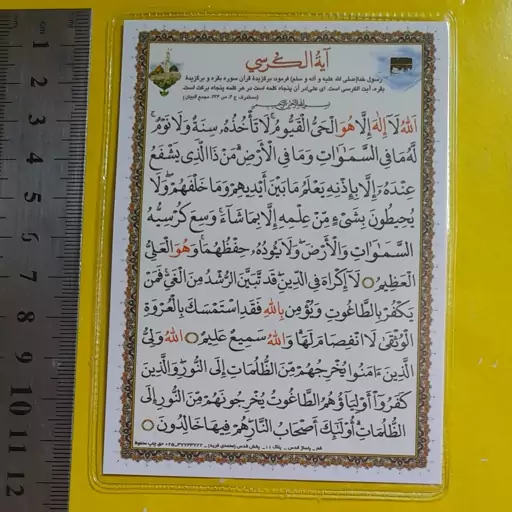 آیة الکرسي
رسول خدا(صلی الله علیه و آله و سلم) فرمود: برگزیدهٔ قرآن سوره بقره و برگزیدهٔ
بقره، آیت الکرسی است. ای علی!در آن پنجاه کلمه است در هر کلمه پنجاه برکت است.
بسم الله الرحمن الرحیم
اَللّٰهُ لَا إِلٰهَ إِلَّا هُوَ الْحَيُّ الْقَيُّومُ لَا تَأْخُذُهُ سِنَةٌ وَلَا نَوْمٌ
لَهُ مَا فِي السَّمَاوَاتِ وَمَا فِي الْأَرْضِ مَنْ ذَا الَّذِي يَشْفَعُ
عِنْدَهُ إِلَّا بِإِذْنِهِ يَعْلَمُ مَا بَيْنَ أَيْدِيهِمْ وَمَا خَلْفَهُمْ وَلَا
يُحِيطُونَ بِشَيْءٍ مِنْ عِلْمِهِ إِلَّا بِمَا شَاءَ وَسِعَ كُرْسِيُّهُ
السَّمَاوَاتِ وَالْأَرْضَ وَلَا يَئُودُهُ حِفْظُهُمَا وَهُوَ الْعَلِيُّ
الْعَظِيمُ لَا إِكْرَاهَ فِي الدِّينِ قَدْ تَبَيَّنَ الرُّشْدُ مِنَ الْغَيِّ فَمَنْ
يَكْفُرْ بِالطَّاغُوتِ وَيُؤْمِنْ بِاللّٰهِ فَقَدِ اسْتَمْسَكَ بِالْعُرْوَةِ
الْوُثْقَىٰ لَا انْفِصَامَ لَهَا وَاللّٰهُ سَمِيعٌ عَلِيمٌ اَللّٰهُ وَلِيُّ
الَّذِينَ ءَامَنُوا يُخْرِجُهُمْ مِنَ الظُّلُمَاتِ إِلَى النُّورِ وَالَّذِينَ
كَفَرُوا أَوْلِيَاؤُهُمُ الطَّاغُوتُ يُخْرِجُونَهُمْ مِنَ النُّورِ إِلَى
الظُّلُمَاتِ أُولَٰئِكَ أَصْحَابُ النَّارِ هُمْ فِيهَا خَالِدُونَ
cm 1 2 3 4 5 6 7 8 9 10 11 12